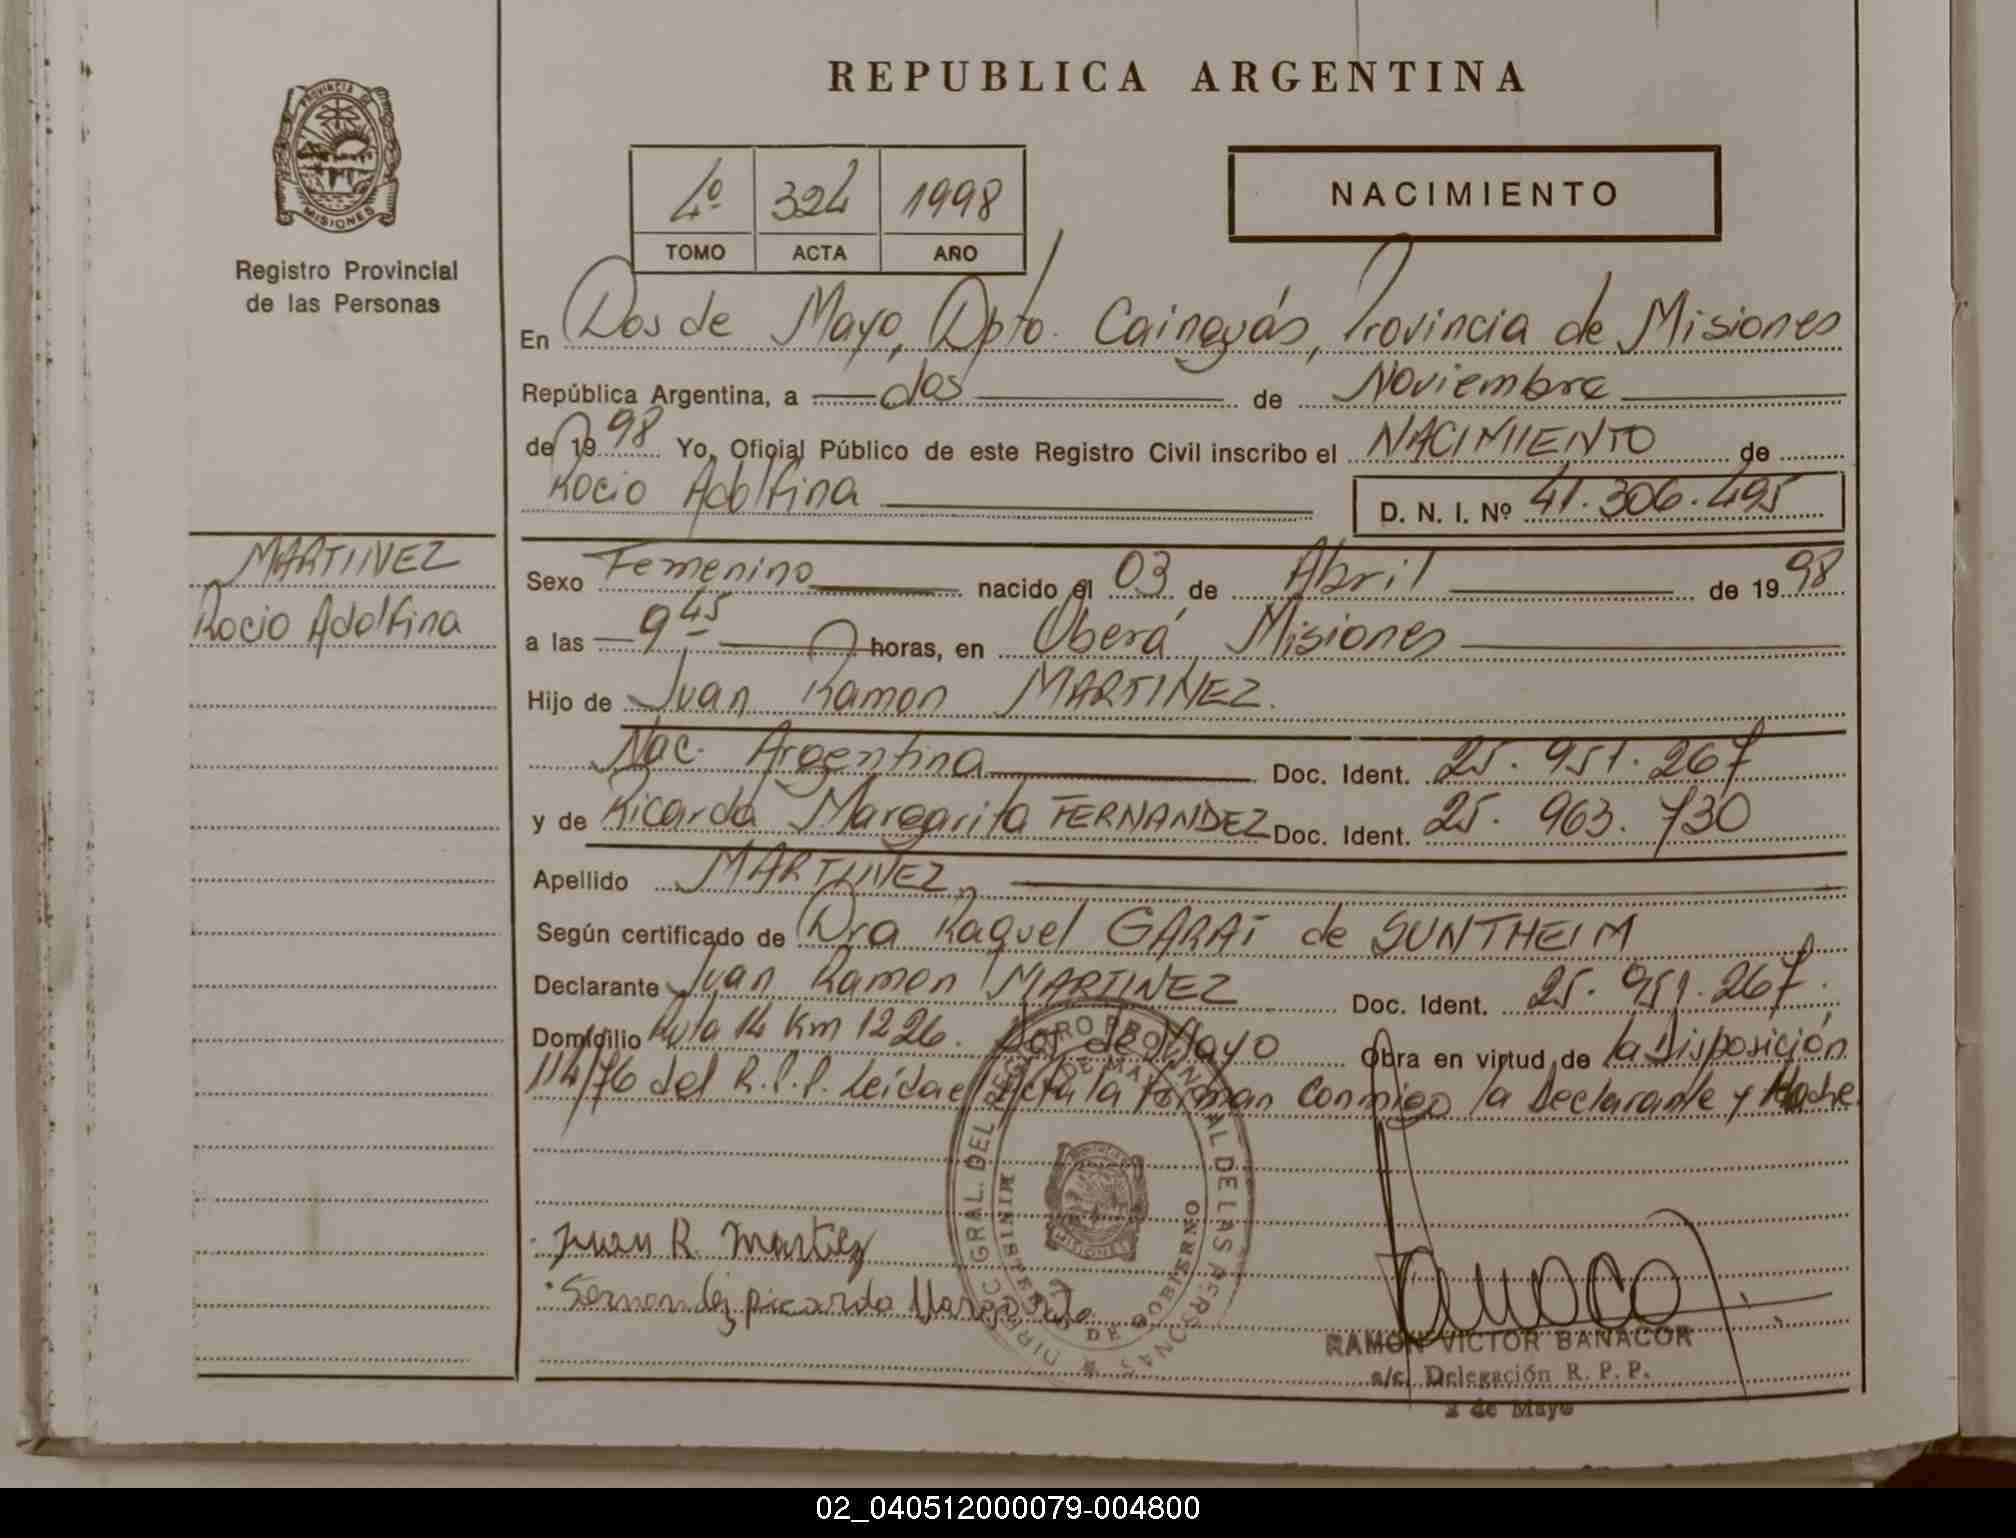 PROVINCIA DE
MISIONES
Registro Provincial
de las Personas
MARTINEZ
Rocio Adolfina
REPUBLICA ARGENTINA
4º 324 1998
TOMO ACTA AÑO
NACIMIENTO
En Dos de Mayo, Dpto. Cainguás, Provincia de Misiones
República Argentina, a dos de Noviembre
de 1998 Yo, Oficial Público de este Registro Civil inscribo el NACIMIENTO de
Rocio Adolfina D. N. I. Nº 41.306.495
Sexo Femenino nacido el 03 de Abril de 1998
a las 9 45 horas, en Oberá Misiones
Hijo de Juan Ramon MARTINEZ.
Nac. Argentina Doc. Ident. 25.951.267
y de Ricarda Margarita FERNANDEZ Doc. Ident. 25.963.730
Apellido MARTINEZ
Según certificado de Dra Raquel GARAT de SUNTHEIM
Declarante Juan Ramon MARTINEZ Doc. Ident. 25.951.267.
Domicilio Ruta 14 Km 1226. Dos de Mayo Obra en virtud de la Disposición
114/76 del R.P.P. leida el Acta la forman conmigo la Declarante y Madre.
DIRECC. GRAL. DEL REGISTRO PROVINCIAL DE LAS PERSONAS
MINISTERIO DE GOBIERNO
DE MAYO
MISIONES
Juan R. Martinez
Fernandez ricarda Margarita
RAMON VICTOR BANACOR
a/c. Delegación R. P. P.
2 de Mayo
02_040512000079-004800